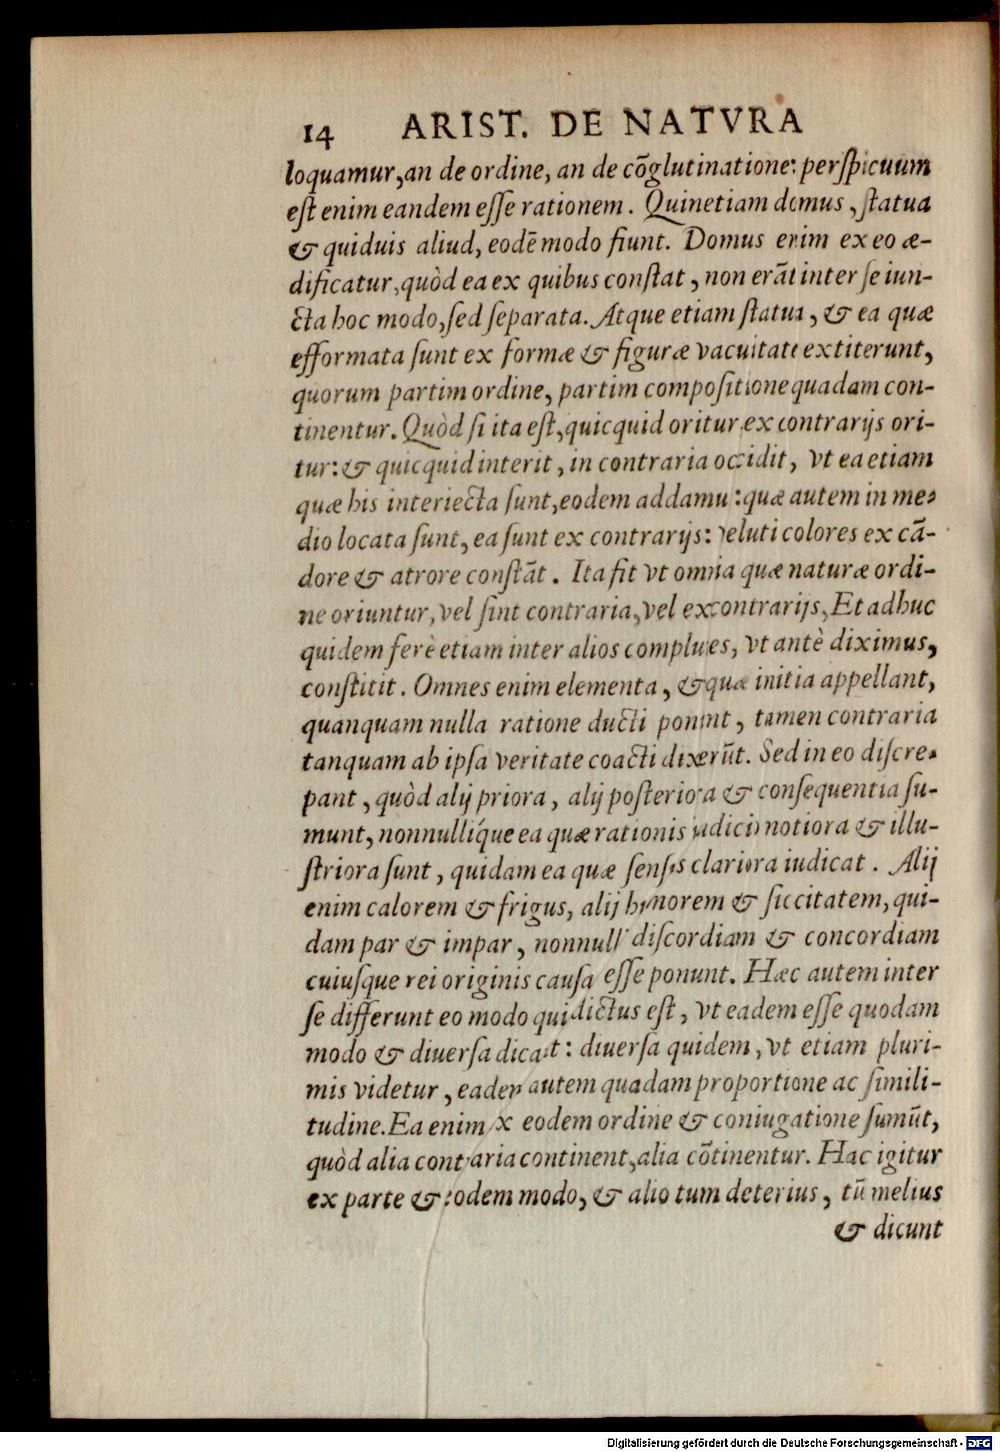 14 ARIST. DE NATVRA
loquamur, an de ordine, an de cõglutinatione: perſpicuum
eſt enim eandem eſſe rationem. Quinetiam domus, ſtatua
& quiduis aliud, eodẽ modo fiunt. Domus enim ex eo æ-
dificatur, quòd ea ex quibus conſtat, non erãt inter ſe iun-
cta hoc modo, ſed ſeparata. Atque etiam ſtatua, & ea quæ
efformata ſunt ex formæ & figuræ vacuitate extiterunt,
quorum partim ordine, partim compoſitione quadam con-
tinentur. Quòd ſi ita eſt, quicquid oritur ex contrarijs ori-
tur: & quicquid interit, in contraria occidit, vt ea etiam
quæ his interiecta ſunt, eodem addamu: quæ autem in me-
dio locata ſunt, ea ſunt ex contrarijs: veluti colores ex cã-
dore & atrore conſtãt. Ita fit vt omnia quæ naturæ ordi-
ne oriuntur, vel ſint contraria, vel ex contrarijs, Et adhuc
quidem ferè etiam inter alios complues, vt antè diximus,
conſtitit. Omnes enim elementa, & quæ initia appellant,
quanquam nulla ratione ducti ponunt, tamen contraria
tanquam ab ipſa veritate coacti dixerũt. Sed in eo diſcre-
pant, quòd alij priora, alij poſteriora & conſequentia ſu-
munt, nonnullíque ea quæ rationis iudicio notiora & illu-
ſtriora ſunt, quidam ea quæ ſenſus clariora iudicat. Alij
enim calorem & frigus, alij humorem & ſiccitatem, qui-
dam par & impar, nonnulli diſcordiam & concordiam
cuiuſque rei originis cauſa eſſe ponunt. Hæc autem inter
ſe differunt eo modo qui dictus eſt, vt eadem eſſe quodam
modo & diuerſa dicat: diuerſa quidem, vt etiam pluri-
mis videtur, eadem autem quadam proportione ac ſimili-
tudine. Ea enim ex eodem ordine & coniugatione ſumũt,
quòd alia contraria continent, alia cõtinentur. Hac igitur
ex parte & eodem modo, & alio tum deterius, tũ melius
& dicunt
Digitalisierung gefördert durch die Deutsche Forschungsgemeinschaft - DFG